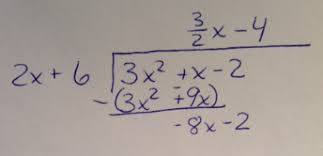 3/2 x - 4
2x + 6 3x² + x - 2
-(3x² + 9x)
-8x - 2